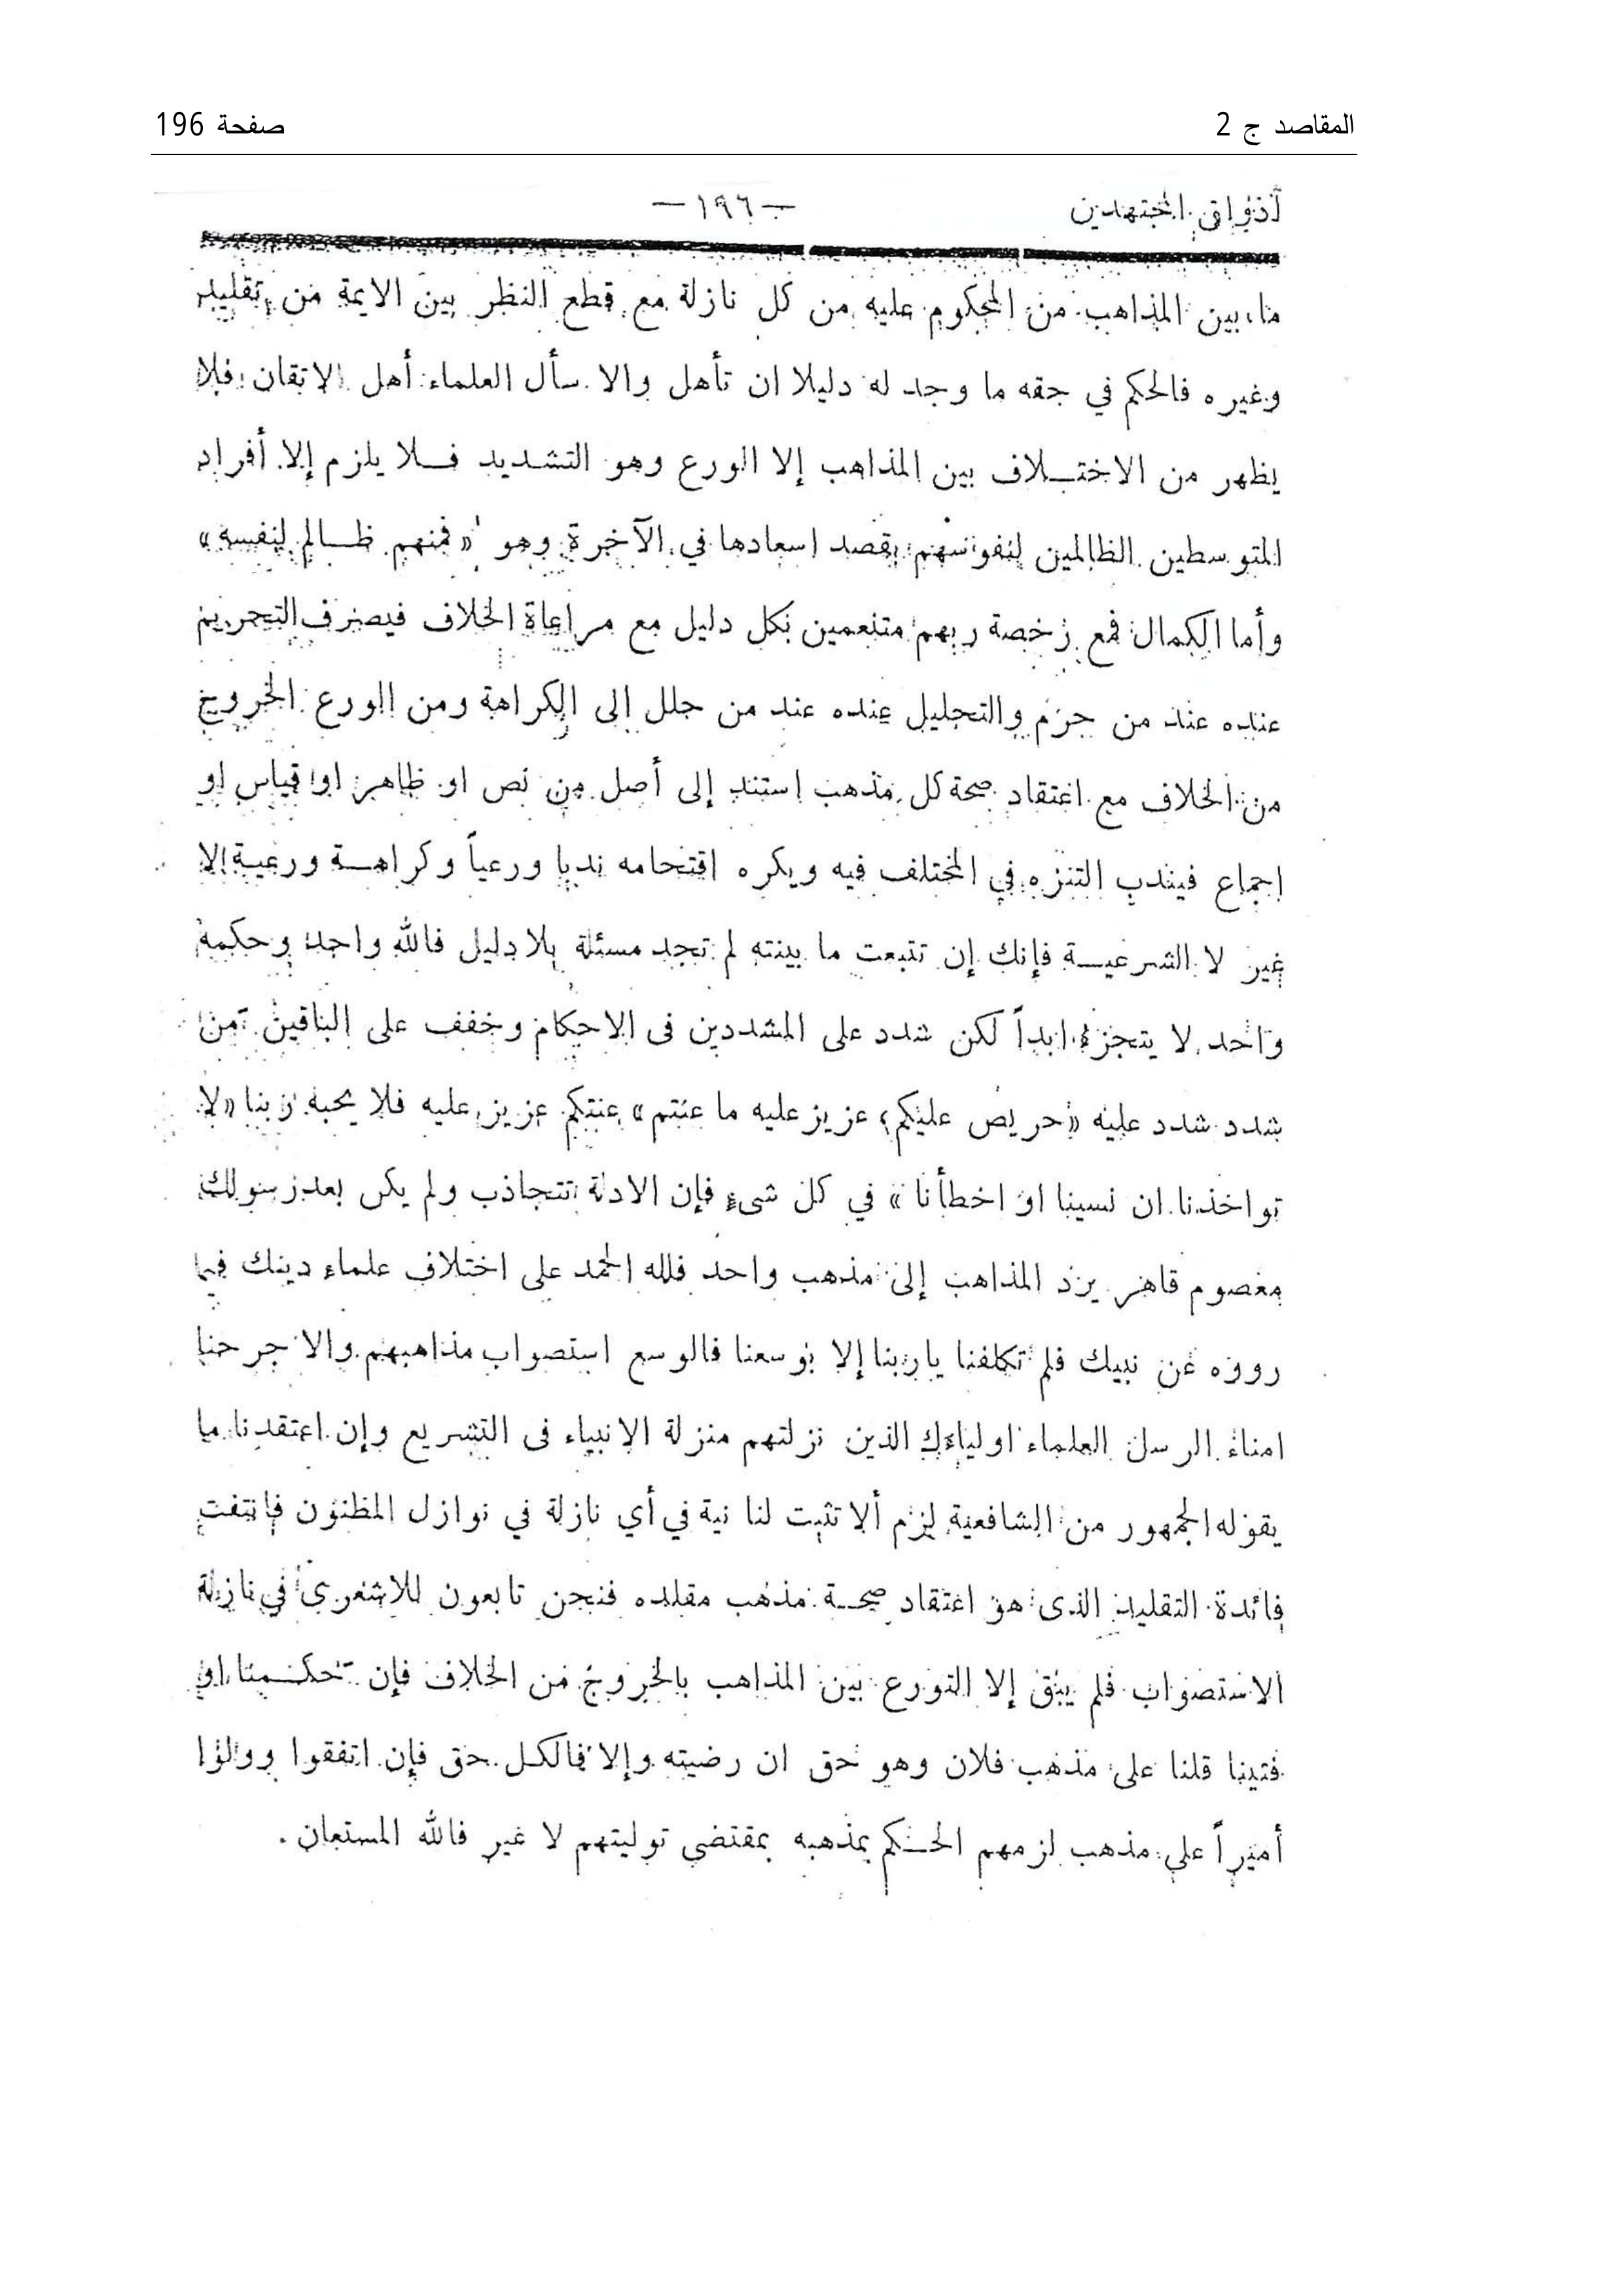 المقاصد ج 2
صفحة 196
أذواق المجتهدين
— ١٩٦ —
ما بين المذاهب من المحكوم عليه من كل نازلة مع قطع النظر بين الايمة من تقليد
وغيره فالحكم في حقه ما وجد له دليلا ان تأهل والا سأل العلماء أهل الاتقان فلا
يظهر من الاختلاف بين المذاهب إلا الورع وهو التشديد فلا يلزم إلا أفراد
المتوسطين الظالمين لنفوسهم بقصد اسعادها في الآخرة وهو «فمنهم ظالم لنفسه»
وأما الكمال فمع رخصة ربهم متنعمين بكل دليل مع مراعاة الخلاف فيصرف التحريم
عنده عند من حرم والتحليل عنده عند من حلل إلى الكراهة ومن الورع الخروج
من الخلاف مع اعتقاد صحة كل مذهب استند إلى أصل من نص او ظاهر او قياس او
اجماع فيندب التنزه في المختلف فيه ويكره اقتحامه ندبا ورعياً وكراهة ورعية لا
غير لا الشرعية فإنك إن تتبعت ما بينته لم تجد مسئلة بلا دليل فالله واحد وحكمه
واحد لا يتجزء ابداً لكن شدد على المشددين فى الاحكام وخفف على الباقين من
شدد شدد عليه «حريص عليكم، عزيز عليه ما عنتم» عنتكم عزيز عليه فلا يحبه ربنا «لا
تواخذنا ان نسينا او اخطأنا» في كل شىء فإن الادلة تتجاذب ولم يكن بعد رسولك
معصوم قاهر يرد المذاهب إلى مذهب واحد فلله الحمد على اختلاف علماء دينك فيما
رووه عن نبيك فلم تكلفنا ياربنا إلا بوسعنا فالوسع استصواب مذاهبهم والا جرحنا
امناء الرسل العلماء اولياءك الذين نزلتهم منزلة الانبياء فى التشريع وإن اعتقدنا ما
يقوله الجمهور من الشافعية لزم ألا تثبت لنا نية في أي نازلة في نوازل المظنون فانتفت
فائدة التقليد الذى هو اعتقاد صحة مذهب مقلده فنحن تابعون للاشعري في نازلة
الاستصواب فلم يبق إلا التورع بين المذاهب بالخروج من الخلاف فإن حكمنا او
فتينا قلنا على مذهب فلان وهو حق ان رضيته وإلا فالكل حق فإن اتفقوا وولوا
أميراً على مذهب لزمهم الحكم بمذهبه بمقتضى توليتهم لا غير فالله المستعان .